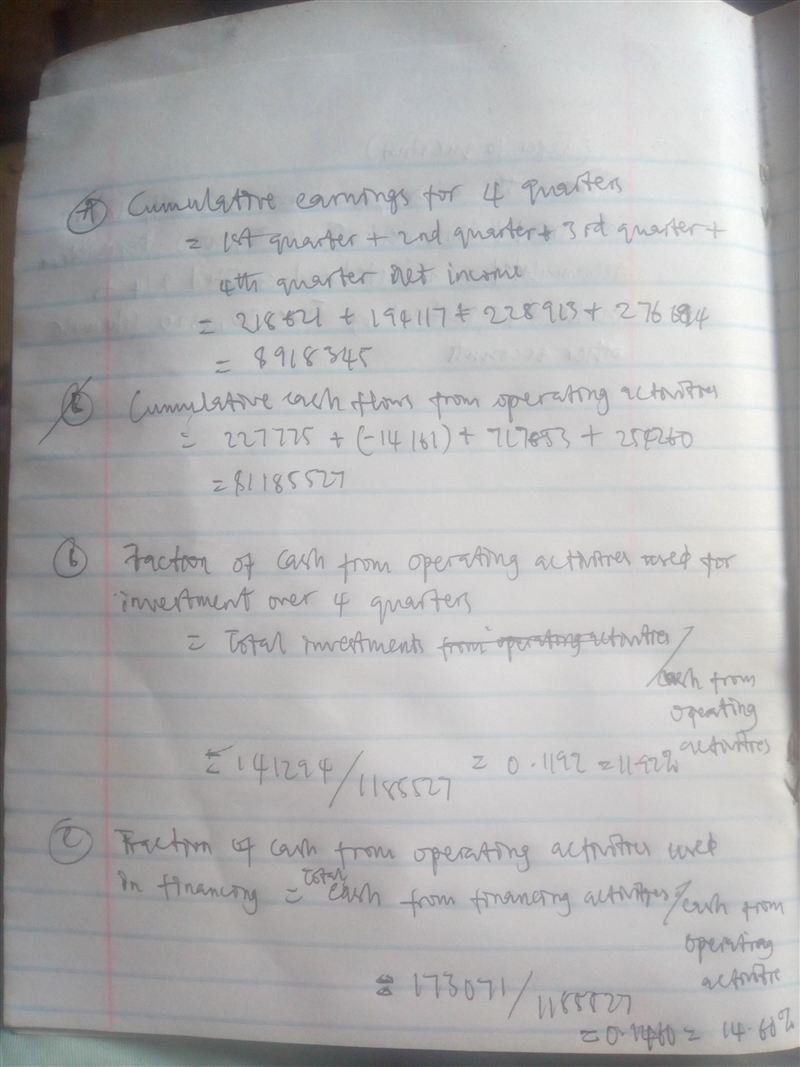 A Cumulative earnings for 4 quarters
= 1st quarter + 2nd quarter + 3rd quarter +
4th quarter net income
= 218621 + 194117 + 228913 + 276694
= 8918345
Cummulative cash flows from operating activities
= 227775 + (-14161) + 717653 + 254260
= $1185527
b Fraction of cash from operating activities used for
investment over 4 quarters
= Total investments from operating activities /
cash from
operating
activities
= 141294 / 1185527 = 0.1192 = 11.92%
c Fraction of cash from operating activities used
in financing = total cash from financing activities / cash from
operating
activitie
= 173071 / 1185527
= 0.1460 = 14.60%